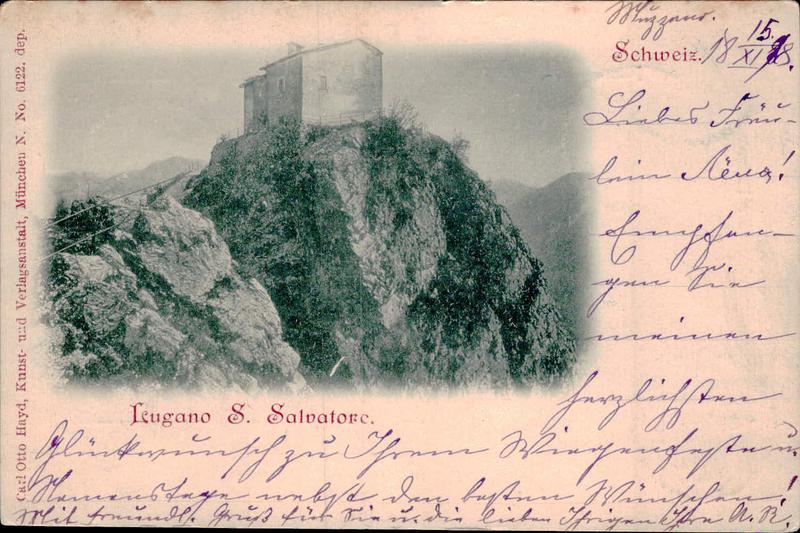 Muzzano.
Schweiz. 18 15./XI 98.
Liebes Fräu-
lein !
Empfan-
gen Sie
meinen
herzlichsten
Glückwunsch zu Ihrem Wiegenfeste u.
Namenstage nebst den besten Wünschen!
Mit freundl. Gruß für Sie u. die lieben Ihrigen Ihre A. R.
Lugano S. Salvatore.
Carl Otto Hayd, Kunst- und Verlagsanstalt, München N. No. 6122. dep.